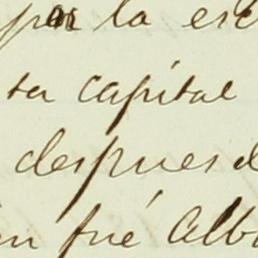 por la esc
ta capital
despues d
en fué Alb